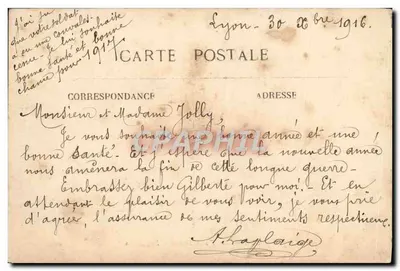 Lyon - 30 Xbre 1916.
J'ai su
que votre soldat
a eu une convales-
cence. Je lui souhaite
bonne santé et bonne
chance pour 1917
CARTE POSTALE
CORRESPONDANCE ADRESSE
Monsieur et Madame Jolly,
Je vous souhaite une bonne année et une
bonne santé. Et espère que la nouvelle année
nous amènera la fin de cette longue guerre -
Embrassez bien Gilberte pour moi. - Et en
attendant le plaisir de vous voir, je vous prie
d'agréer, l'assurance de mes sentiments respectueux.
A. Laplaige